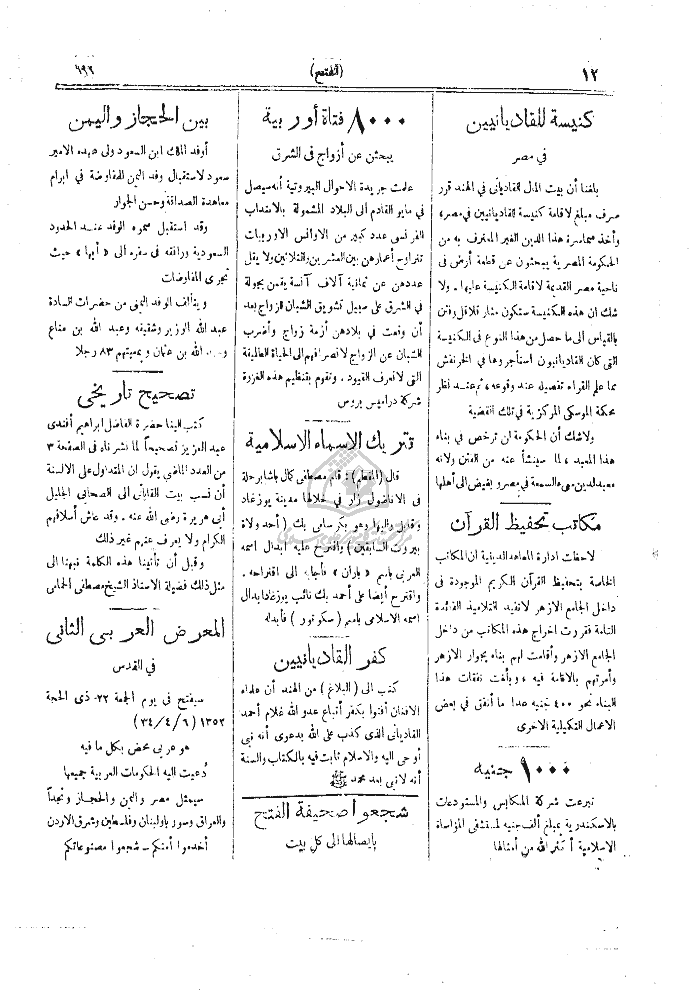 ١٢
(الفتح)
٦٩٦
كنيسة للقاديانيين
في مصر
بلغنا أن بيت المال القادياني في الهند قرر
صرف مبلغ لاقامة كنيسة للقاديانيين في مصر،
وأخذ سماسرة هذا الدين الغير المعترف به من
الحكومة المصرية يبحثون عن قطعة أرض في
ناحية مصر القديمة لاقامة الكنيسة عليها. ولا
شك ان هذه الكنيسة ستكون منار قلاقل وفتن
بالقياس الى ما حصل من هذا النوع في الكنيسة
التي كان القاديانيون استأجروها في الخرنفش
مما علم القراء تفصيله عند وقوعه، ثم عند نظر
محكمة الموسكي المركزية في تلك القضية
ولا شك أن الحكومة لن ترخص في بناء
هذا المعبد، لما سينشأ عنه من الفتن ولانه
معبد لدين سيء السمعة في مصر وبغيض الى أهلها
مكاتب تحفيظ القرآن
لاحظت ادارة المعاهد الدينية ان المكاتب
الخاصة بتحفيظ القرآن الكريم الموجودة في
داخل الجامع الازهر لا تفيد التلاميذ الفائدة
التامة فقررت اخراج هذه المكاتب من داخل
الجامع الازهر وأقامت لهم بناء بجوار الازهر
وأمرتهم بالاقامة فيه، وبلغت نفقات هذا
البناء نحو ٤٠٠ جنيه عدا ما أنفق في بعض
الاعمال التكميلية الاخرى
١٠٠٠ جنيه
تبرعت شركة المكابس والمستودعات
بالاسكندرية بمبلغ ألف جنيه لمستشفى المواساة
الاسلامية أكثر الله من أمثالها
٨٠٠٠ فتاة أوربية
يبحثن عن أزواج في الشرق
علمت جريدة الاحوال البيروتية أنه سيصل
في مايو القادم الى البلاد المشمولة بالانتداب
الفرنسي عدد كبير من الاوانس الاوربيات
تتراوح أعمارهن بين العشرين والثلاثين ولا يقل
عددهن عن ثمانية آلاف آنسة يقمن بجولة
في الشرق على سبيل تشويق الشبان للزواج بعد
أن وقعت في بلادهن أزمة زواج وأضرب
الشبان عن الزواج لانصرافهم الى الحياة الطليقة
التي لا تعرف القيود. وتقوم بتنظيم هذه الغزوة
شركة دراميس بروس
تتريك الاسماء الاسلامية
قال (المقطم): قام مصطفى كمال باشا برحلة
في الاناضول زار في خلالها مدينة يوزغاد
وقابل واليها وهو بكر سامي بك (أحد ولاة
بيروت السابقين) واقترح عليه ابدال اسمه
العربي باسم «باران» فأجابه الى اقتراحه.
واقترح أيضا على أحمد بك نائب يوزغاد ابدال
اسمه الاسلامي باسم (سكونور) فأبدله
كفر القاديانيين
كتب الى (البلاغ) من الهند أن علماء
الافغان أفتوا بكفر أتباع عدو الله غلام أحمد
القادياني الذي كذب على الله بدعوى أنه نبي
أوحي اليه والاسلام ثابت فيه بالكتاب والسنة
أنه لا نبي بعد محمد ﷺ
شجعوا صحيفة الفتح
بايصالها الى كل بيت
بين الحجاز واليمن
أوفد الملك ابن السعود ولي عهده الامير
سعود لاستقبال وفد اليمن للمفاوضة في ابرام
معاهدة الصداقة وحسن الجوار
وقد استقبل سموه الوفد عند الحدود
السعودية ورافقه في سفره الى «أبها» حيث
تجرى المفاوضات
ويتألف الوفد اليمني من حضرات السادة
عبد الله الوزير وشقيقه وعبد الله بن مناع
الله بن عثمان وبمعيتهم ٨٣ رجلا
تصحيح تاريخي
كتب الينا حضرة الفاضل ابراهيم أفندى
عبد العزيز تصحيحاً لما نشرناه في الصفحة ٣
من العدد الماضي يقول ان المتداول على الالسنة
أن نسب بيت القاياتي الى الصحابي الجليل
أبي هريرة رضي الله عنه. وقد عاش أسلافهم
الكرام ولا يعرف عنهم غير ذلك
وقبل أن تأتينا هذه الكلمة نبهنا الى
مثل ذلك فضيلة الاستاذ الشيخ مصطفى الحمامي
المعرض العربي الثاني
في القدس
سيفتح في يوم الجمعة ٢٢ ذي الحجة
١٣٥٢ (٣٤/٤/٦)
هو عربي محض بكل ما فيه
دُعيت اليه الحكومات العربية جميعها
سيمثل مصر واليمن والحجاز ونجداً
والعراق وسوريا ولبنان وفلسطين وشرق الاردن
أخدموا أمتكم - شجعوا مصنوعاتكم